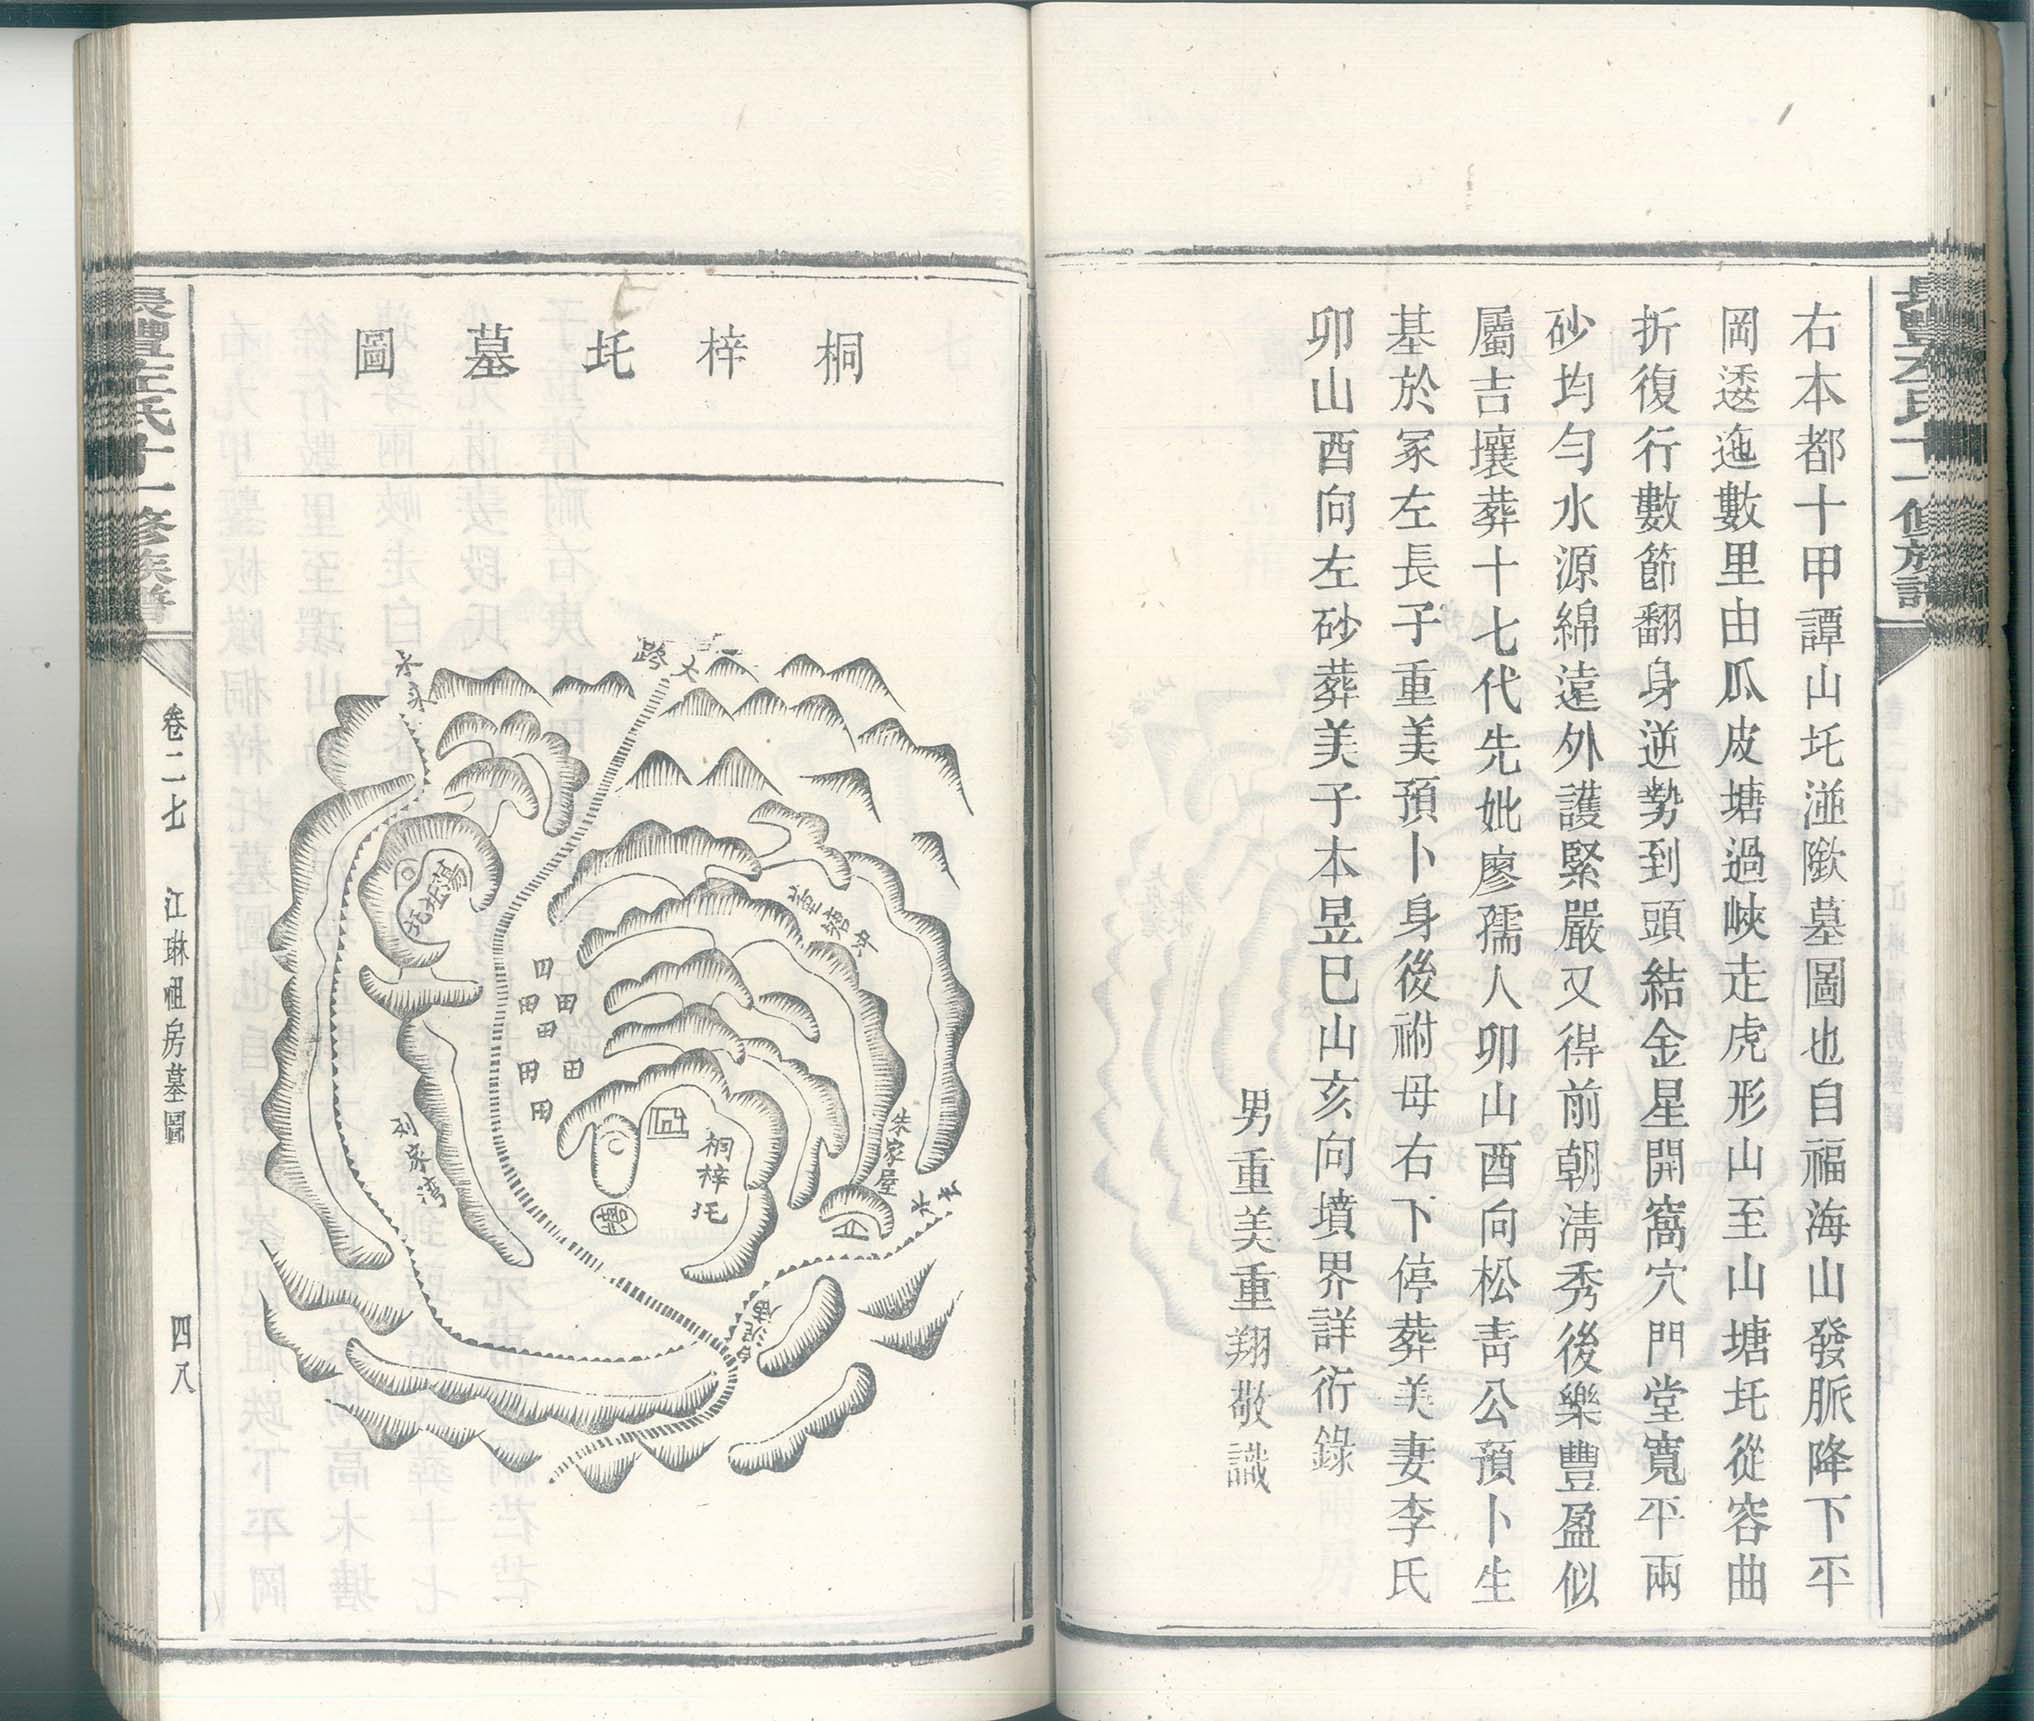 右本都十甲譚山圫湴𡑞墓圖也自福海山發脈降下平
岡逶迤數里由瓜皮塘過峽走虎形山至山塘圫從容曲
折復行數節翻身逆勢到頭結金星開窩穴門堂寬平兩
砂均勻水源綿遠外護緊嚴又得前朝淸秀後樂豐盈似
屬吉壤葬十七代先妣廖孺人卯山酉向松靑公預卜生
基於冢左長子重美預卜身後祔母右下停葬美妻李氏
卯山酉向左砂葬美子本昱巳山亥向墳界詳衍錄
男重美重翔敬識
桐梓圫墓圖
大路
田
田
田
田
田
田
田
桐梓圫
塘
朱家屋
刘家湾
氏十一修族譜
卷二七
江琳祖房墓圖
四八